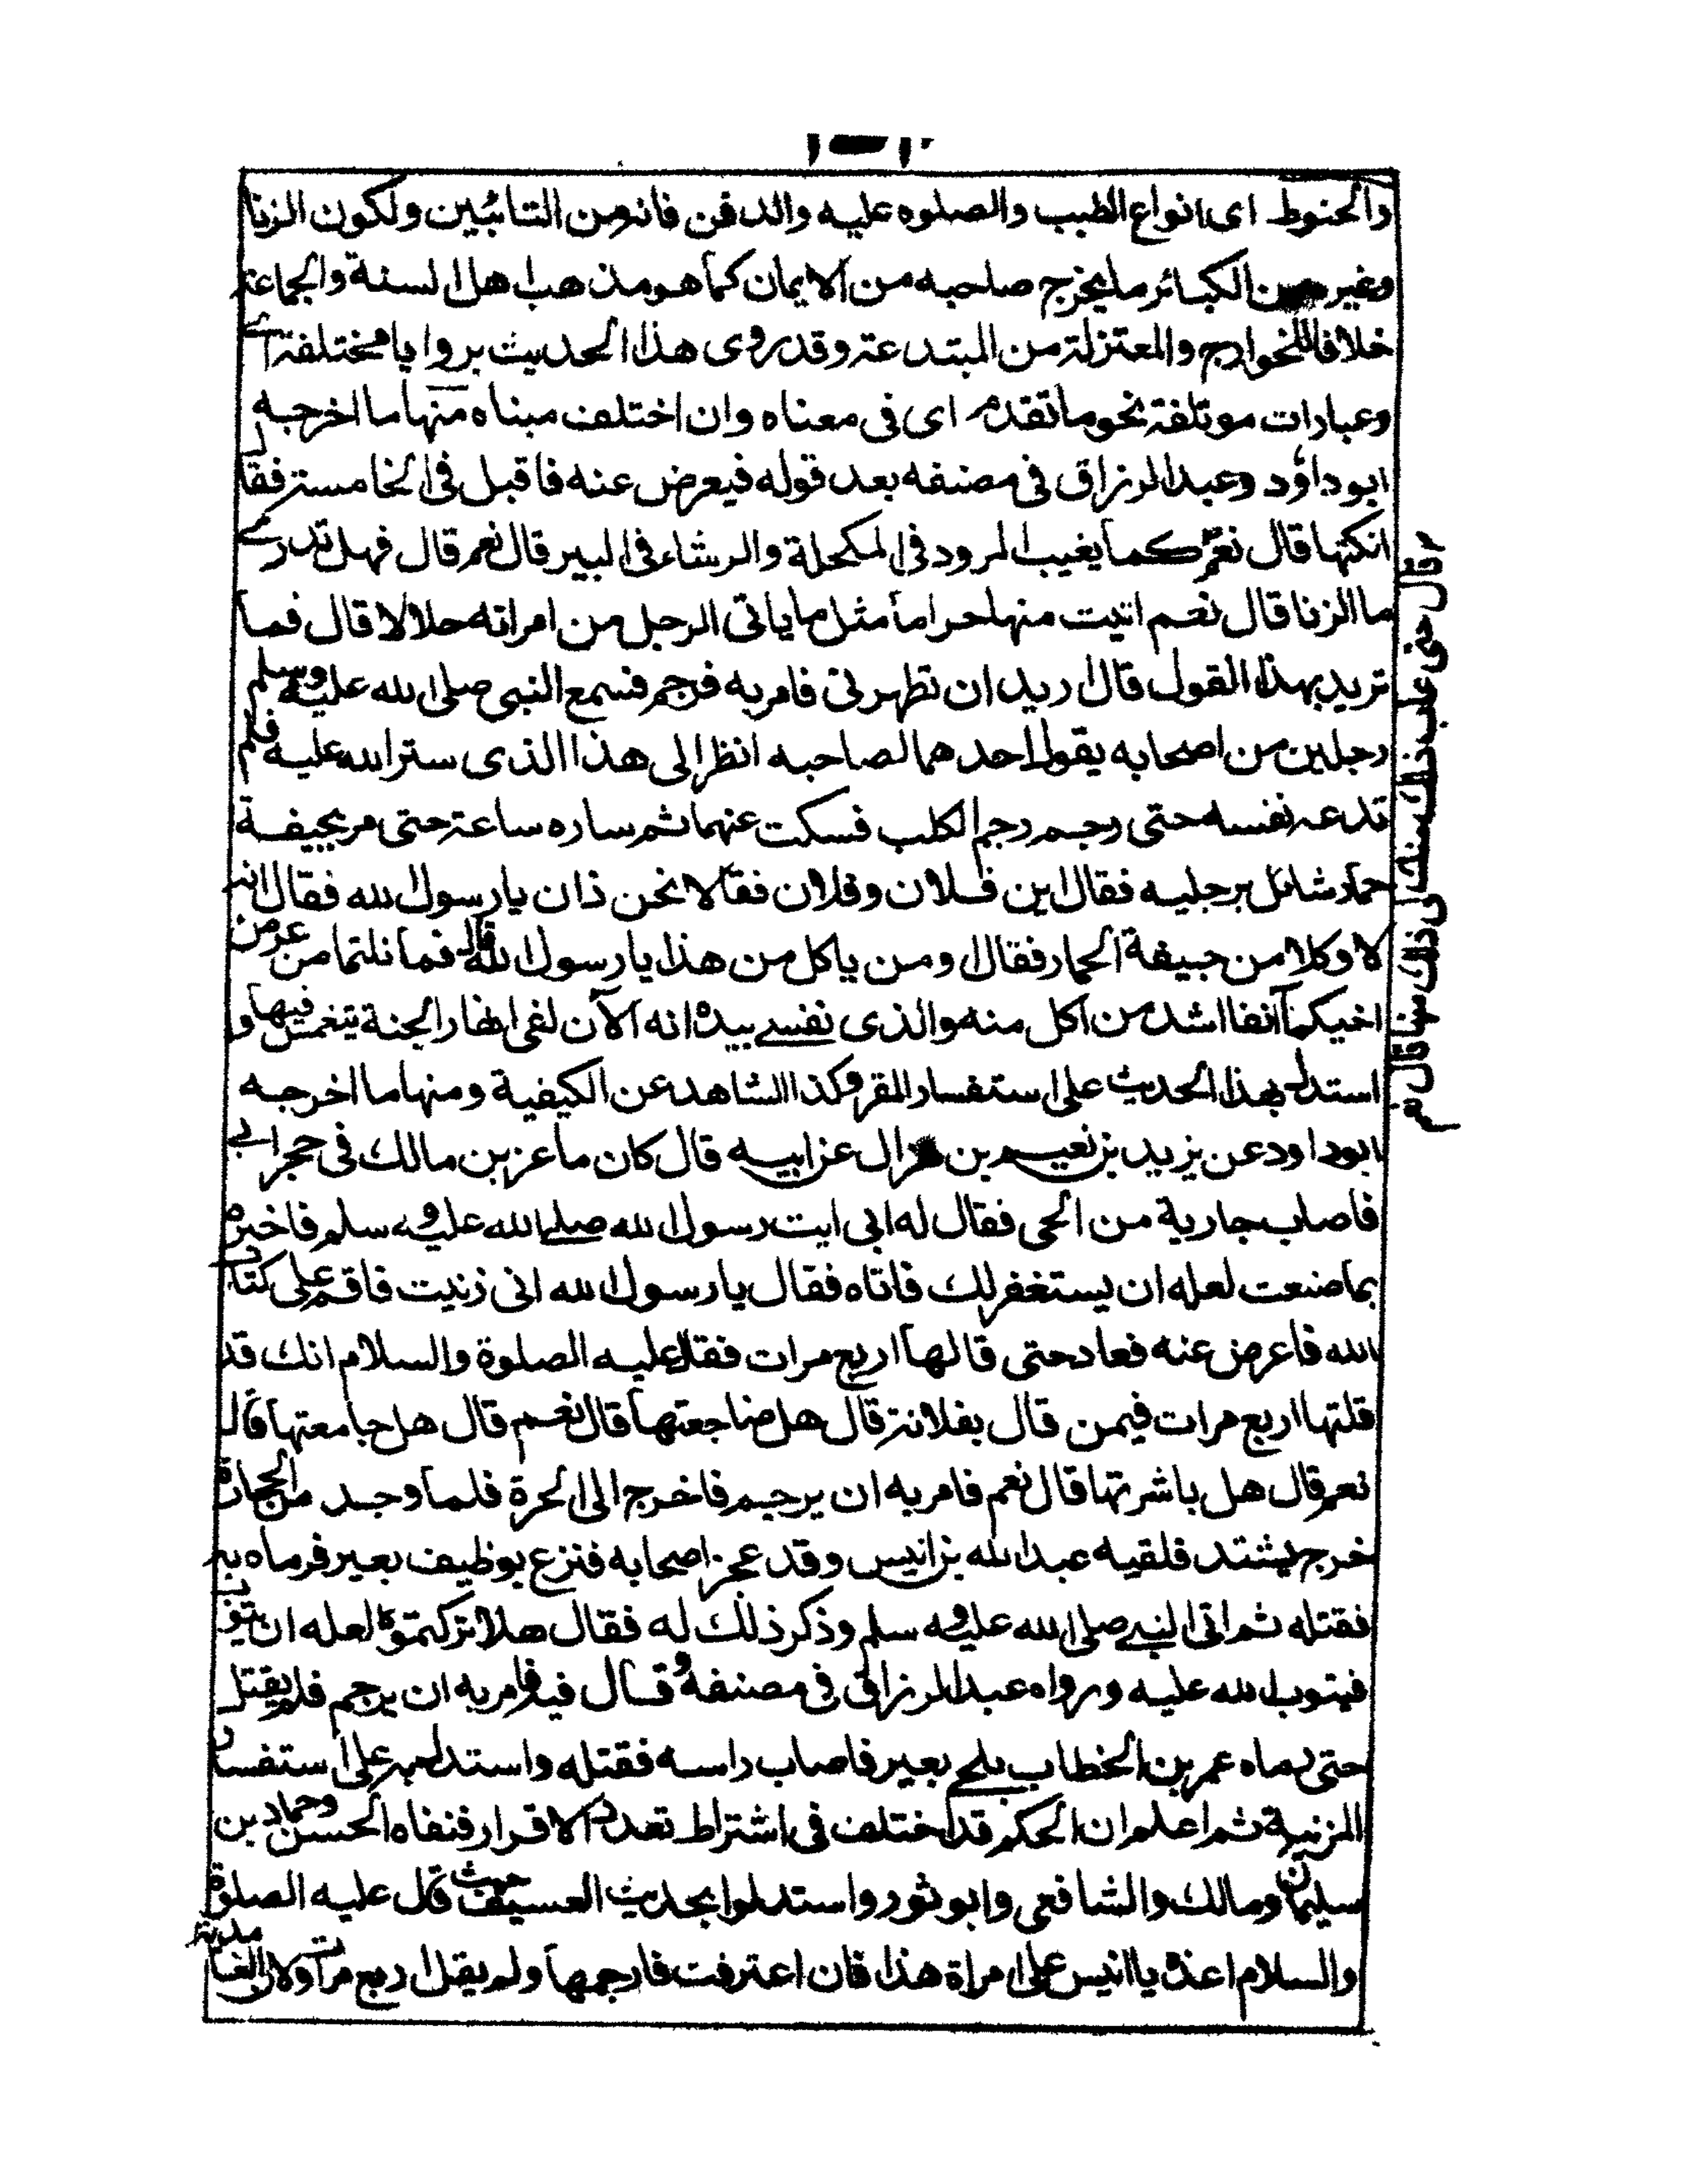 والحنوط اى انواع الطيب والصلوه عليه والدفن فانه من التائبين ولكون الزنا
وغيره من الكبائر ما يخرج صاحبه من الايمان كما هو مذهب اهل السنة والجماعة
خلافا للخوارج والمعتزلة من المبتدعة وقد روى هذا الحديث بروايا مختلفة اے
وعبارات موتلفة نحو ما تقدم اى فى معناه وان اختلف مبناه منها ما اخرجه
ابو داؤد وعبد الرزاق فى مصنفه بعد قوله فيعرض عنه فاقبل فى الخامسة فقال
انكتها قال نعم كما يغيب المرود فى المكحلة والرشاء فى البير قال نعم قال فهل تدرے
ما الزنا قال نعم اتيت منها حراما مثل ما ياتى الرجل من امراته حلالا قال فما
تريد بهذا القول قال اريد ان تطهرنى فامر به فرجم فسمع النبى صلى الله عليه وسلم
رجلين من اصحابه يقول احدهما لصاحبه انظر الى هذا الذى ستر الله عليه فلم
تدعه نفسه حتى رجم رجم الكلب فسكت عنهما ثم ساره ساعة حتى مر بجيفة
حمار شائل برجليه فقال اين فلان وفلان فقالا نحن ذان يا رسول الله فقال انزلا
وكلا من جيفة الحمار فقال ومن ياكل من هذا يا رسول الله قال فما نلتما من عرض
اخيكما آنفا اشد من اكل منه والذى نفسے بيده انه الآن لفى انهار الجنة يتغمس فيها و
استدل بهذا الحديث على استفسار المقر وكذا الشاهد عن الكيفية ومنها ما اخرجه
ابو داود عن يزيد بن نعيم بن هزال عن ابيه قال كان ماعز بن مالك فى حجر ابى
فاصاب جارية من الحى فقال له ابى ايت رسول الله صلى الله عليه وسلم فاخبره
بما صنعت لعله ان يستغفر لك فاتاه فقال يا رسول الله انى زنيت فاقم على كتاب
الله فاعرض عنه فعاد حتى قالها اربع مرات فقال عليه الصلوة والسلام انك قد
قلتها اربع مرات فيمن قال بفلانة قال هل ضاجعتها قال نعم قال هل جامعتها قال
نعم قال هل باشرتها قال نعم فامر به ان يرجم فاخرج الى الحرة فلما وجد مس الحجارة
خرج يشتد فلقيه عبد الله بن انيس وقد عجز اصحابه فنزع بوظيف بعير فرماه به
فقتله ثم اتى النبے صلى الله عليه وسلم وذكر ذلك له فقال هلا تركتموه لعله ان يتوب
فيتوب الله عليه ورواه عبد الرزاق فى مصنفه وقال فيه فامر به ان يرجم فلم يقتل
حتى رماه عمر بن الخطاب بلحے بعير فاصاب راسه فقتله واستدل به على استفسار
المزنية ثم اعلم ان الحكم قد اختلف فى اشتراط تعدد الاقرار فنفاه الحسن وحماد بن
سليمان ومالك والشافعى وابو ثور واستدلوا بحديث العسيف حيث قال عليه الصلوة
والسلام اغد يا انيس على امراة هذا فان اعترفت فارجمها ولم يقل اربع مرات ولان الغامدية
قال حتى غاب ذلك منك فى ذلك منها قال نعم